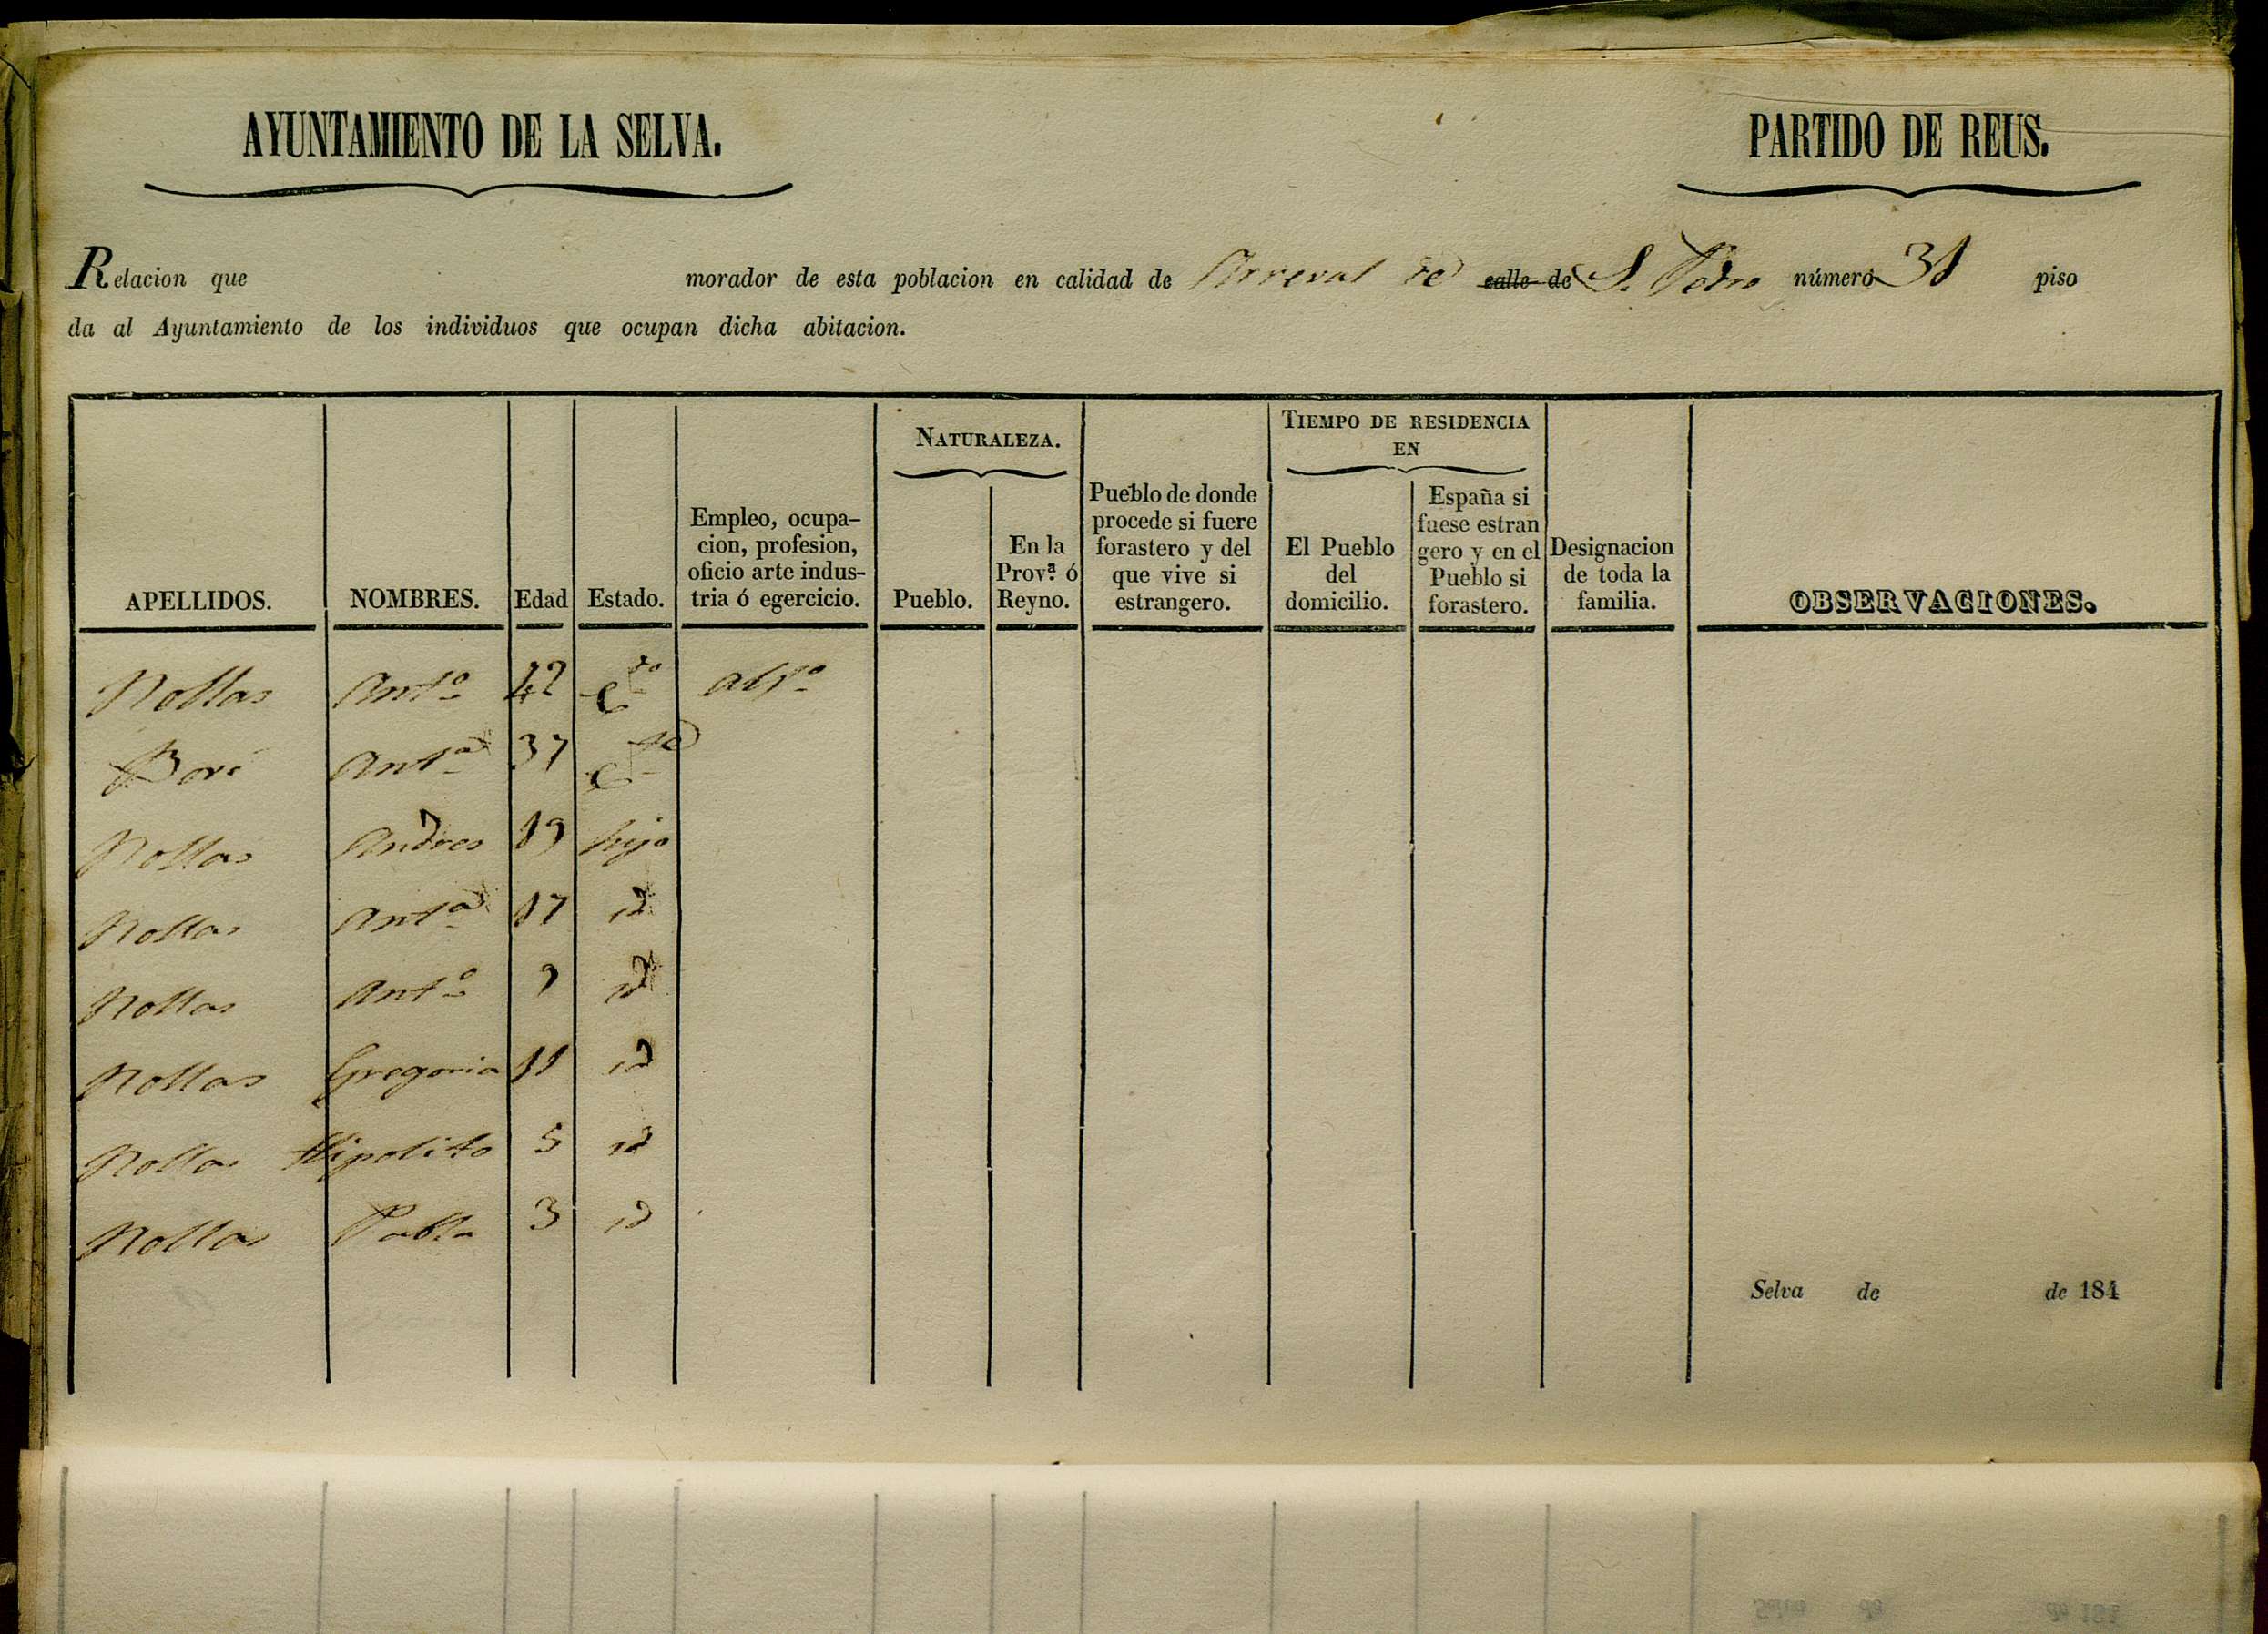 AYUNTAMIENTO DE LA SELVA. PARTIDO DE REUS.
Relacion que morador de esta poblacion en calidad de Arreval de calle de S. Pedro número 31 piso
da al Ayuntamiento de los individuos que ocupan dicha abitacion.
APELLIDOS. NOMBRES. Edad Estado. Empleo, ocupa-
cion, profesion,
oficio arte indus-
tria ó egercicio. NATURALEZA.
Pueblo. En la
Prov.ª ó
Reyno. Pueblo de donde
procede si fuere
forastero y del
que vive si
estrangero. TIEMPO DE RESIDENCIA
EN
El Pueblo
del
domicilio. España si
fuese estran
gero y en el
Pueblo si
forastero. Designacion
de toda la
familia. OBSERVACIONES.
Nollas Antº 42 cdº
Boré Antª 37 cda
Nollas Andres 19 hijo
Nollas Antª 17 id
Nollas Antº 9 id
Nollas Gregoria 11 id
Nollas Hipolito 5 id
Nollas Pabla 3 id
Selva de de 184